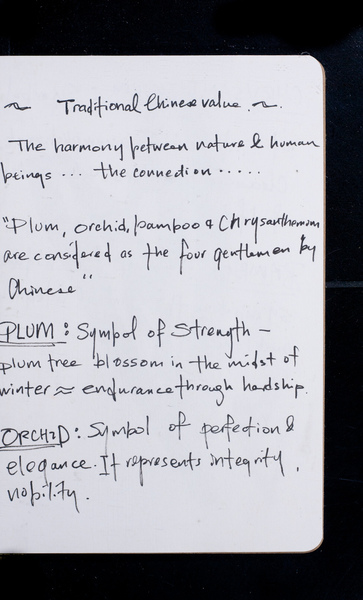 ~ Traditional Chinese value. ~.
The harmony between nature & human
beings ... the connection .....
"Plum, orchid, bamboo & Chrysanthemum
are considered as the four gentleman by
Chinese"
PLUM : Symbol of Strength –
plum tree blossom in the midst of
winter ≈ endurance through hardship.
ORCHID : Symbol of perfection &
elegance. It represents integrity,
nobility.